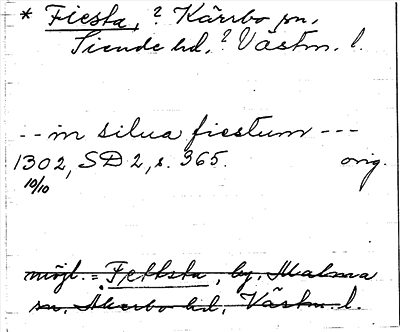 * Fiesta, ? Kärrbo sn,
Siende hd, ? Västm. l.
-- in silua fiestum ---
1302, SD 2, s. 365. orig.
10/10
möjl. = Fettsta, by, Malma
sn, Åkerbo hd, Västm. l.